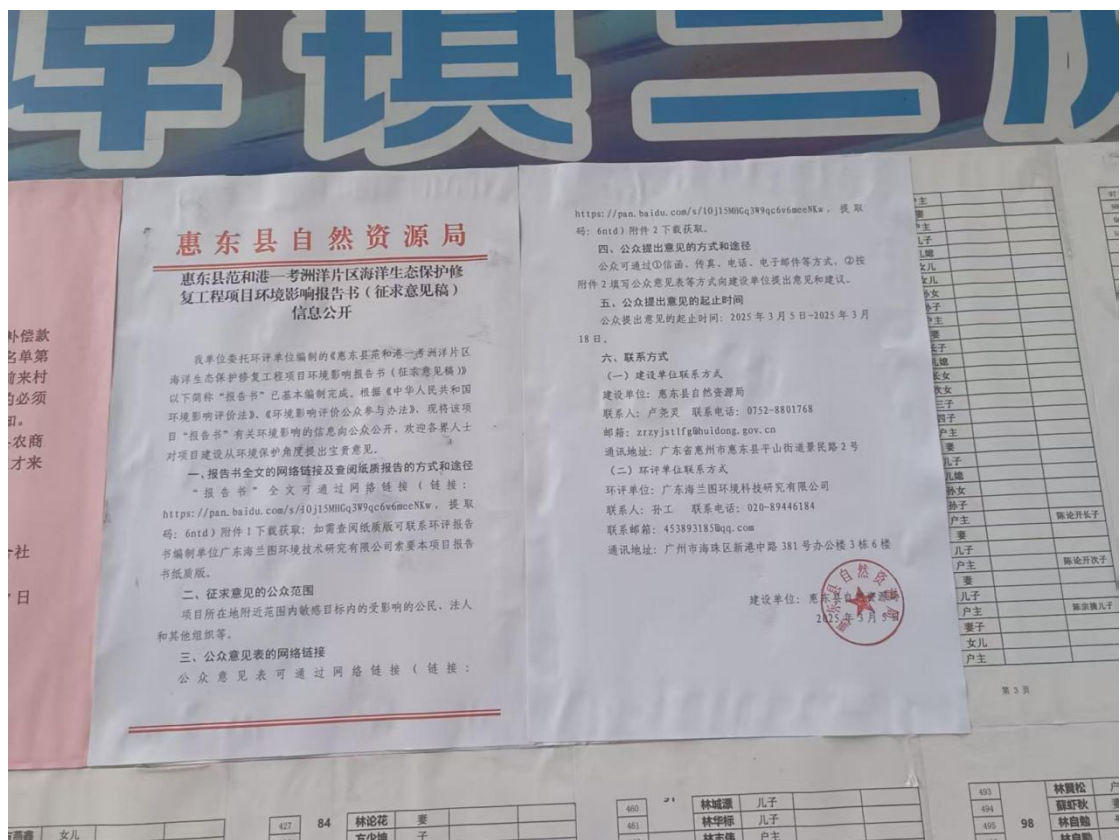 镇三
惠东县自然资源局
惠东县范和港—考洲洋片区海洋生态保护修
复工程项目环境影响报告书（征求意见稿）
信息公开
我单位委托环评单位编制的《惠东县范和港—考洲洋片区
海洋生态保护修复工程项目环境影响报告书（征求意见稿）》
以下简称“报告书”已基本编制完成，根据《中华人民共和国
环境影响评价法》、《环境影响评价公众参与办法》，现将该项
目“报告书”有关环境影响的信息向公众公开，欢迎各界人士
对项目建设从环境保护角度提出宝贵意见。
一、报告书全文的网络链接及查阅纸质报告的方式和途径
“报告书”全文可通过网络链接（链接：
https://pan.baidu.com/s/1Oj15MHGq3W9qc6v6meeNKw，提取
码：6ntd）附件1下载获取；如需查阅纸质版可联系环评报告
书编制单位广东海兰图环境技术研究有限公司索要本项目报告
书纸质版。
二、征求意见的公众范围
项目所在地附近范围内敏感目标内的受影响的公民、法人
和其他组织等。
三、公众意见表的网络链接
公众意见表可通过网络链接（链接：
https://pan.baidu.com/s/1Oj15MHGq3W9qc6v6meeNKw，提取
码：6ntd）附件2下载获取。
四、公众提出意见的方式和途径
公众可通过①信函、传真、电话、电子邮件等方式，②按
附件2填写公众意见表等方式向建设单位提出意见和建议。
五、公众提出意见的起止时间
公众提出意见的起止时间：2025年3月5日-2025年3月
18日。
六、联系方式
（一）建设单位联系方式
建设单位：惠东县自然资源局
联系人：卢尧灵 联系电话：0752-8801768
邮箱：zrzyjstlfg@huidong.gov.cn
通讯地址：广东省惠州市惠东县平山街道景民路2号
（二）环评单位联系方式
环评单位：广东海兰图环境科技研究有限公司
联系人：孙工 联系电话：020-89446184
联系邮箱：453893185@qq.com
通讯地址：广州市海珠区新港中路381号办公楼3栋6楼
建设单位：惠东县自然资源局
2025年3月5日
补偿款
名单第
前来村
的必须
知。
农商
才来
社
日
户主
儿子
儿媳
孙女
孙子
户主
陈论开长子
妻
儿子
户主
陈论开次子
妻
儿子
户主
陈宗换儿子
妻子
女儿
户主
第3页
女儿
427 84 林论花 妻
子
460 林城漂 儿子
461 林华标 儿子
户主
493 林贤松
494 薛虾秋
495 98 林自勉